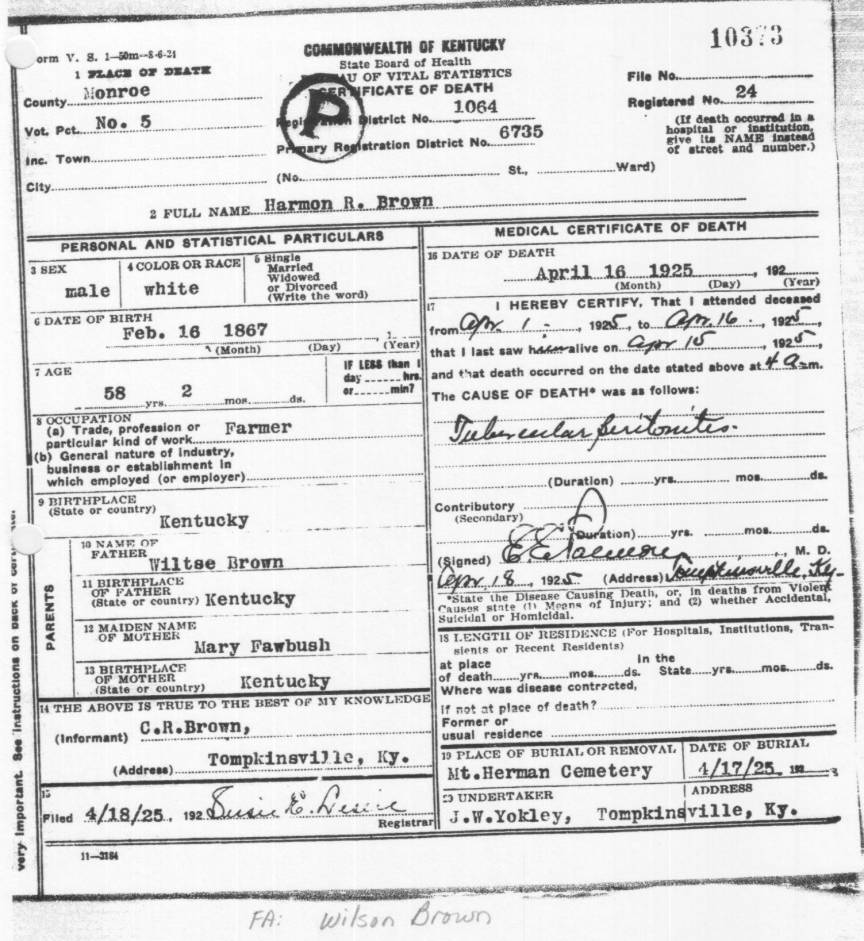 orm V. S. 1—50m—8-6-24
COMMONWEALTH OF KENTUCKY
State Board of Health
AU OF VITAL STATISTICS
CERTIFICATE OF DEATH
10373
1 PLACE OF DEATH
County Monroe
Vot. Pct. No. 5
Inc. Town
City
P
Registration District No. 1064
Primary Registration District No. 6735
(No. St., Ward)
File No.
Registered No. 24
(If death occurred in a
hospital or institution,
give its NAME instead
of street and number.)
2 FULL NAME Harmon R. Brown
PERSONAL AND STATISTICAL PARTICULARS
3 SEX
male
4 COLOR OR RACE
white
5 Single
Married
Widowed
or Divorced
(Write the word)
6 DATE OF BIRTH
Feb. 16 1867 , 1
(Month) (Day) (Year)
7 AGE
58 yrs. 2 mos. ds.
IF LESS than 1
day hrs.
or min?
8 OCCUPATION
(a) Trade, profession or
particular kind of work Farmer
(b) General nature of industry,
business or establishment in
which employed (or employer)
9 BIRTHPLACE
(State or country)
Kentucky
PARENTS
10 NAME OF
FATHER
Wiltse Brown
11 BIRTHPLACE
OF FATHER
(State or country) Kentucky
12 MAIDEN NAME
OF MOTHER
Mary Fawbush
13 BIRTHPLACE
OF MOTHER
(State or country) Kentucky
14 THE ABOVE IS TRUE TO THE BEST OF MY KNOWLEDGE
(Informant) C.R.Brown,
(Address) Tompkinsville, Ky.
15
Filed 4/18/25, 192 Susie E.
Registrar
11—3184
MEDICAL CERTIFICATE OF DEATH
16 DATE OF DEATH
April 16 1925 , 192
(Month) (Day) (Year)
17 I HEREBY CERTIFY, That I attended deceased
from Apr 1 - , 1925, to Apr. 16 , 1925,
that I last saw him alive on Apr 15 , 1925,
and that death occurred on the date stated above at 4 a m.
The CAUSE OF DEATH* was as follows:
Tubercular peritonites.
(Duration) yrs. mos. ds.
Contributory
(Secondary)
(Duration) yrs. mos. ds.
(Signed) E.E. , M. D.
Apr. 18, 1925 (Address) Tompkinsville, Ky.
*State the Disease Causing Death, or, in deaths from Violent
Causes state (1) Means of Injury; and (2) whether Accidental,
Suicidal or Homicidal.
18 LENGTH OF RESIDENCE (For Hospitals, Institutions, Tran-
sients or Recent Residents)
at place In the
of death yrs. mos. ds. State yrs. mos. ds.
Where was disease contracted,
if not at place of death?
Former or
usual residence
19 PLACE OF BURIAL OR REMOVAL
Mt.Herman Cemetery
DATE OF BURIAL
4/17/25, 192
20 UNDERTAKER
ADDRESS
J.W.Yokley, Tompkinsville, Ky.
very important. See instructions on back of certificate.
FA: Wilson Brown